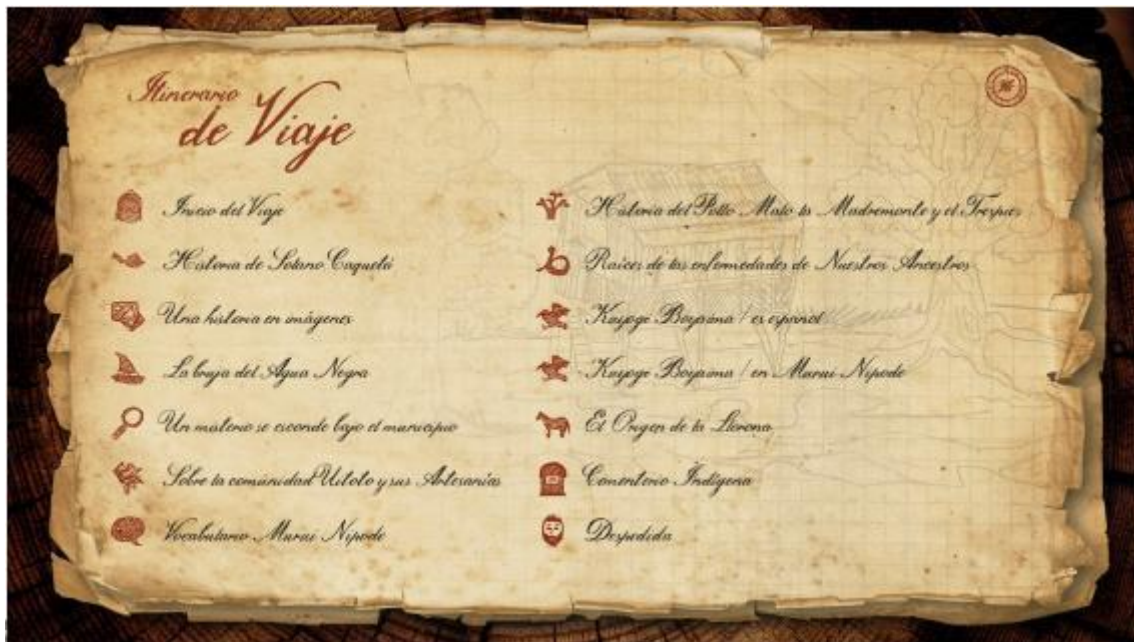 Itinerario
de Viaje
Inicio del Viaje
Historia de Solano Caquetá
Una historia en imágenes
La bruja del Agua Negra
Un misterio se esconde bajo el municipio
Sobre la comunidad Uitoto y sus Artesanías
Vocabulario Murui Nɨpode
Historia del Pollo Malo la Madremonte y el Trespies
Raíces de las enfermedades de Nuestros Ancestros
Boyaima / es español
Boyaima / en Murui Nɨpode
El Origen de la Llorona
Cementerio Indígena
Despedida